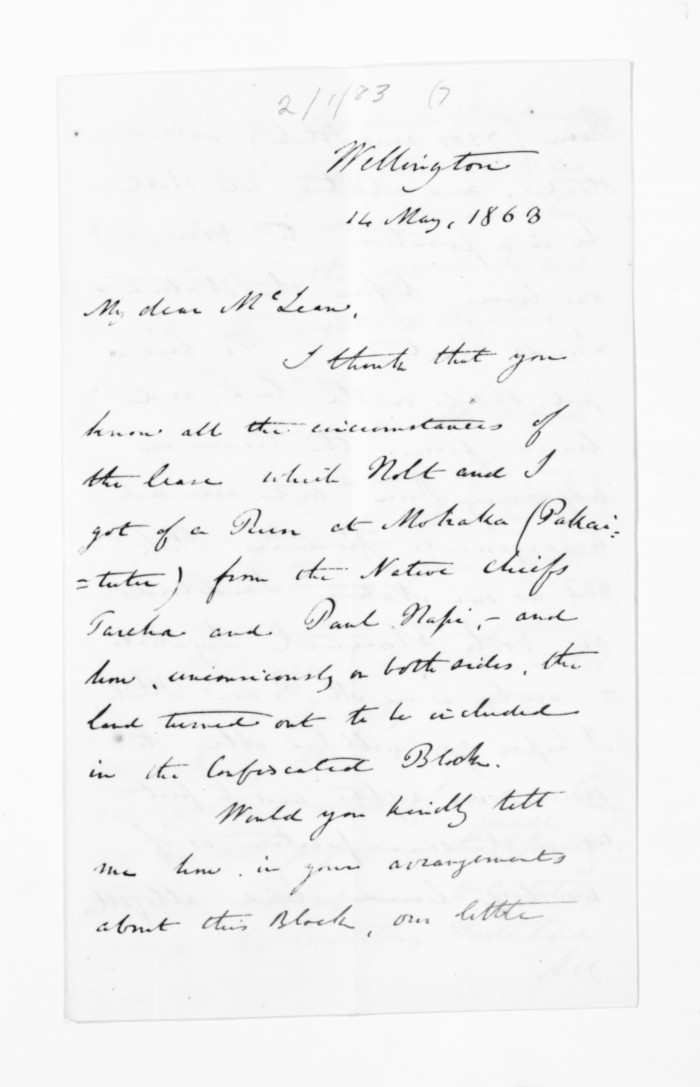 2/1/83 (7
Wellington
14 May, 1868
My dear McLean,
I think that you
know all the circumstances of
the lease which Holt and I
got of a Run at Mohaka (Pakai=
=tutu) from the Native Chiefs
Tareha and Paul Napi, - and
how, unconsciously on both sides, the
land turned out to be included
in the Confiscated Block.
Would you kindly tell
me how, in your arrangements
about this Block, our little